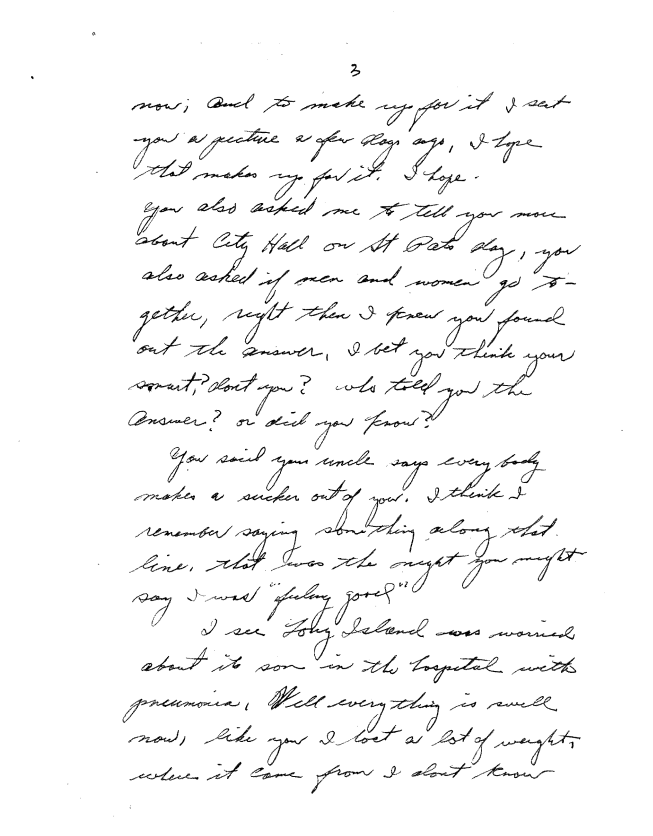 3
now; and to make up for it I sent
you a picture a few days ago, I hope
that makes up for it. I hope.
You also asked me to tell you more
about City Hall on St Pats day, you
also asked if men and women go to-
gether, right then I knew you found
out the answer, I bet you think your
smart,? dont you? who told you the
answer? or did you know?
You said your uncle says every body
makes a sucker out of you. I think I
remember saying something along that
line, that was the night you might
say I was "feeling good"
I see Long Island was worried
about its son in the hospital with
pneumonia, Well everything is swell
now, like you I lost a lot of weight,
where it came from I dont know